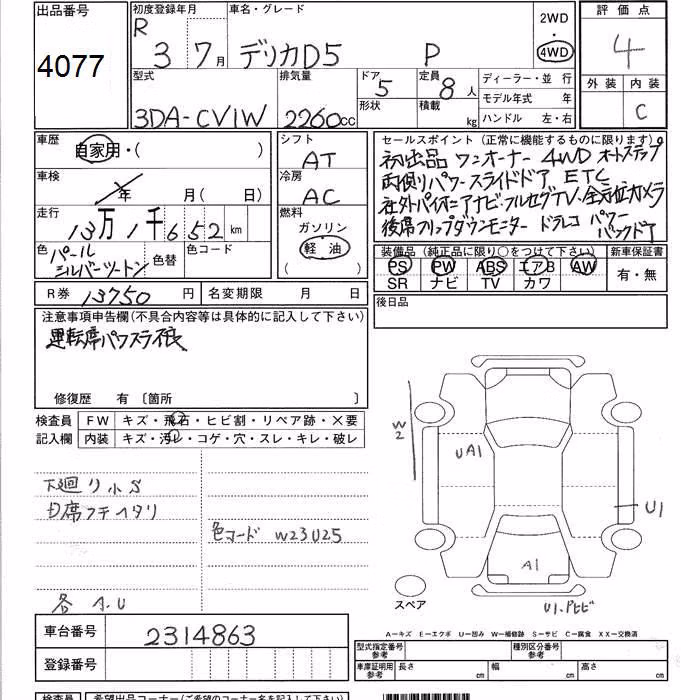 出品番号 初度登録年月 車名・グレード 2WD 評価点
4077 R 3 7月 デリカD5 P 4WD 4
型式 排気量 ドア 5 定員 8人 ディーラー・並行 外装 内装
形状 積載 kg モデル年式 年
3DA-CV1W 2260cc ハンドル 左・右 C
車歴 自家用・( ) シフト AT セールスポイント (正常に機能するものに限ります)
初出品 ワンオーナー 4WD オートステップ
車検 年 月(日) 冷房 AC 両側パワースライドドア ETC
社外パイオニアナビ・フルセグTV、全方位カメラ
走行 13万1千652km 燃料 ガソリン 軽油 ( ) 後席フリップダウンモニター ドラレコ パワーバックドア
色 パールシルバーツートン 色替 色コード 装備品 (純正品に限り○をつけて下さい) 新車保証書
PS PW ABS エアB AW 有・無
SR ナビ TV カワ
R券 13750円 名変期限 月 日 後日品
注意事項申告欄(不具合内容等は具体的に記入して下さい)
運転席パワスラ不良
修復歴 有 〔箇所 〕
検査員 FW キズ・飛石・ヒビ割・リペア跡・X要
記入欄 内装 キズ・汚レ・コゲ・穴・スレ・キレ・破レ
W2
UA1
下廻り小S
U1
色コード W23U25
A1
各 小U
スペア
A-キズ E-エクボ U-凹み W-補修跡 S-サビ C-腐食 XX-交換済
車台番号 2314863
型式指定番号 参考 種別区分番号 参考
登録番号 車庫証明用 参考 長さ cm 幅 cm 高さ cm
検査員 希望出品コーナー(ご希望のコーナー名を記入下さい)